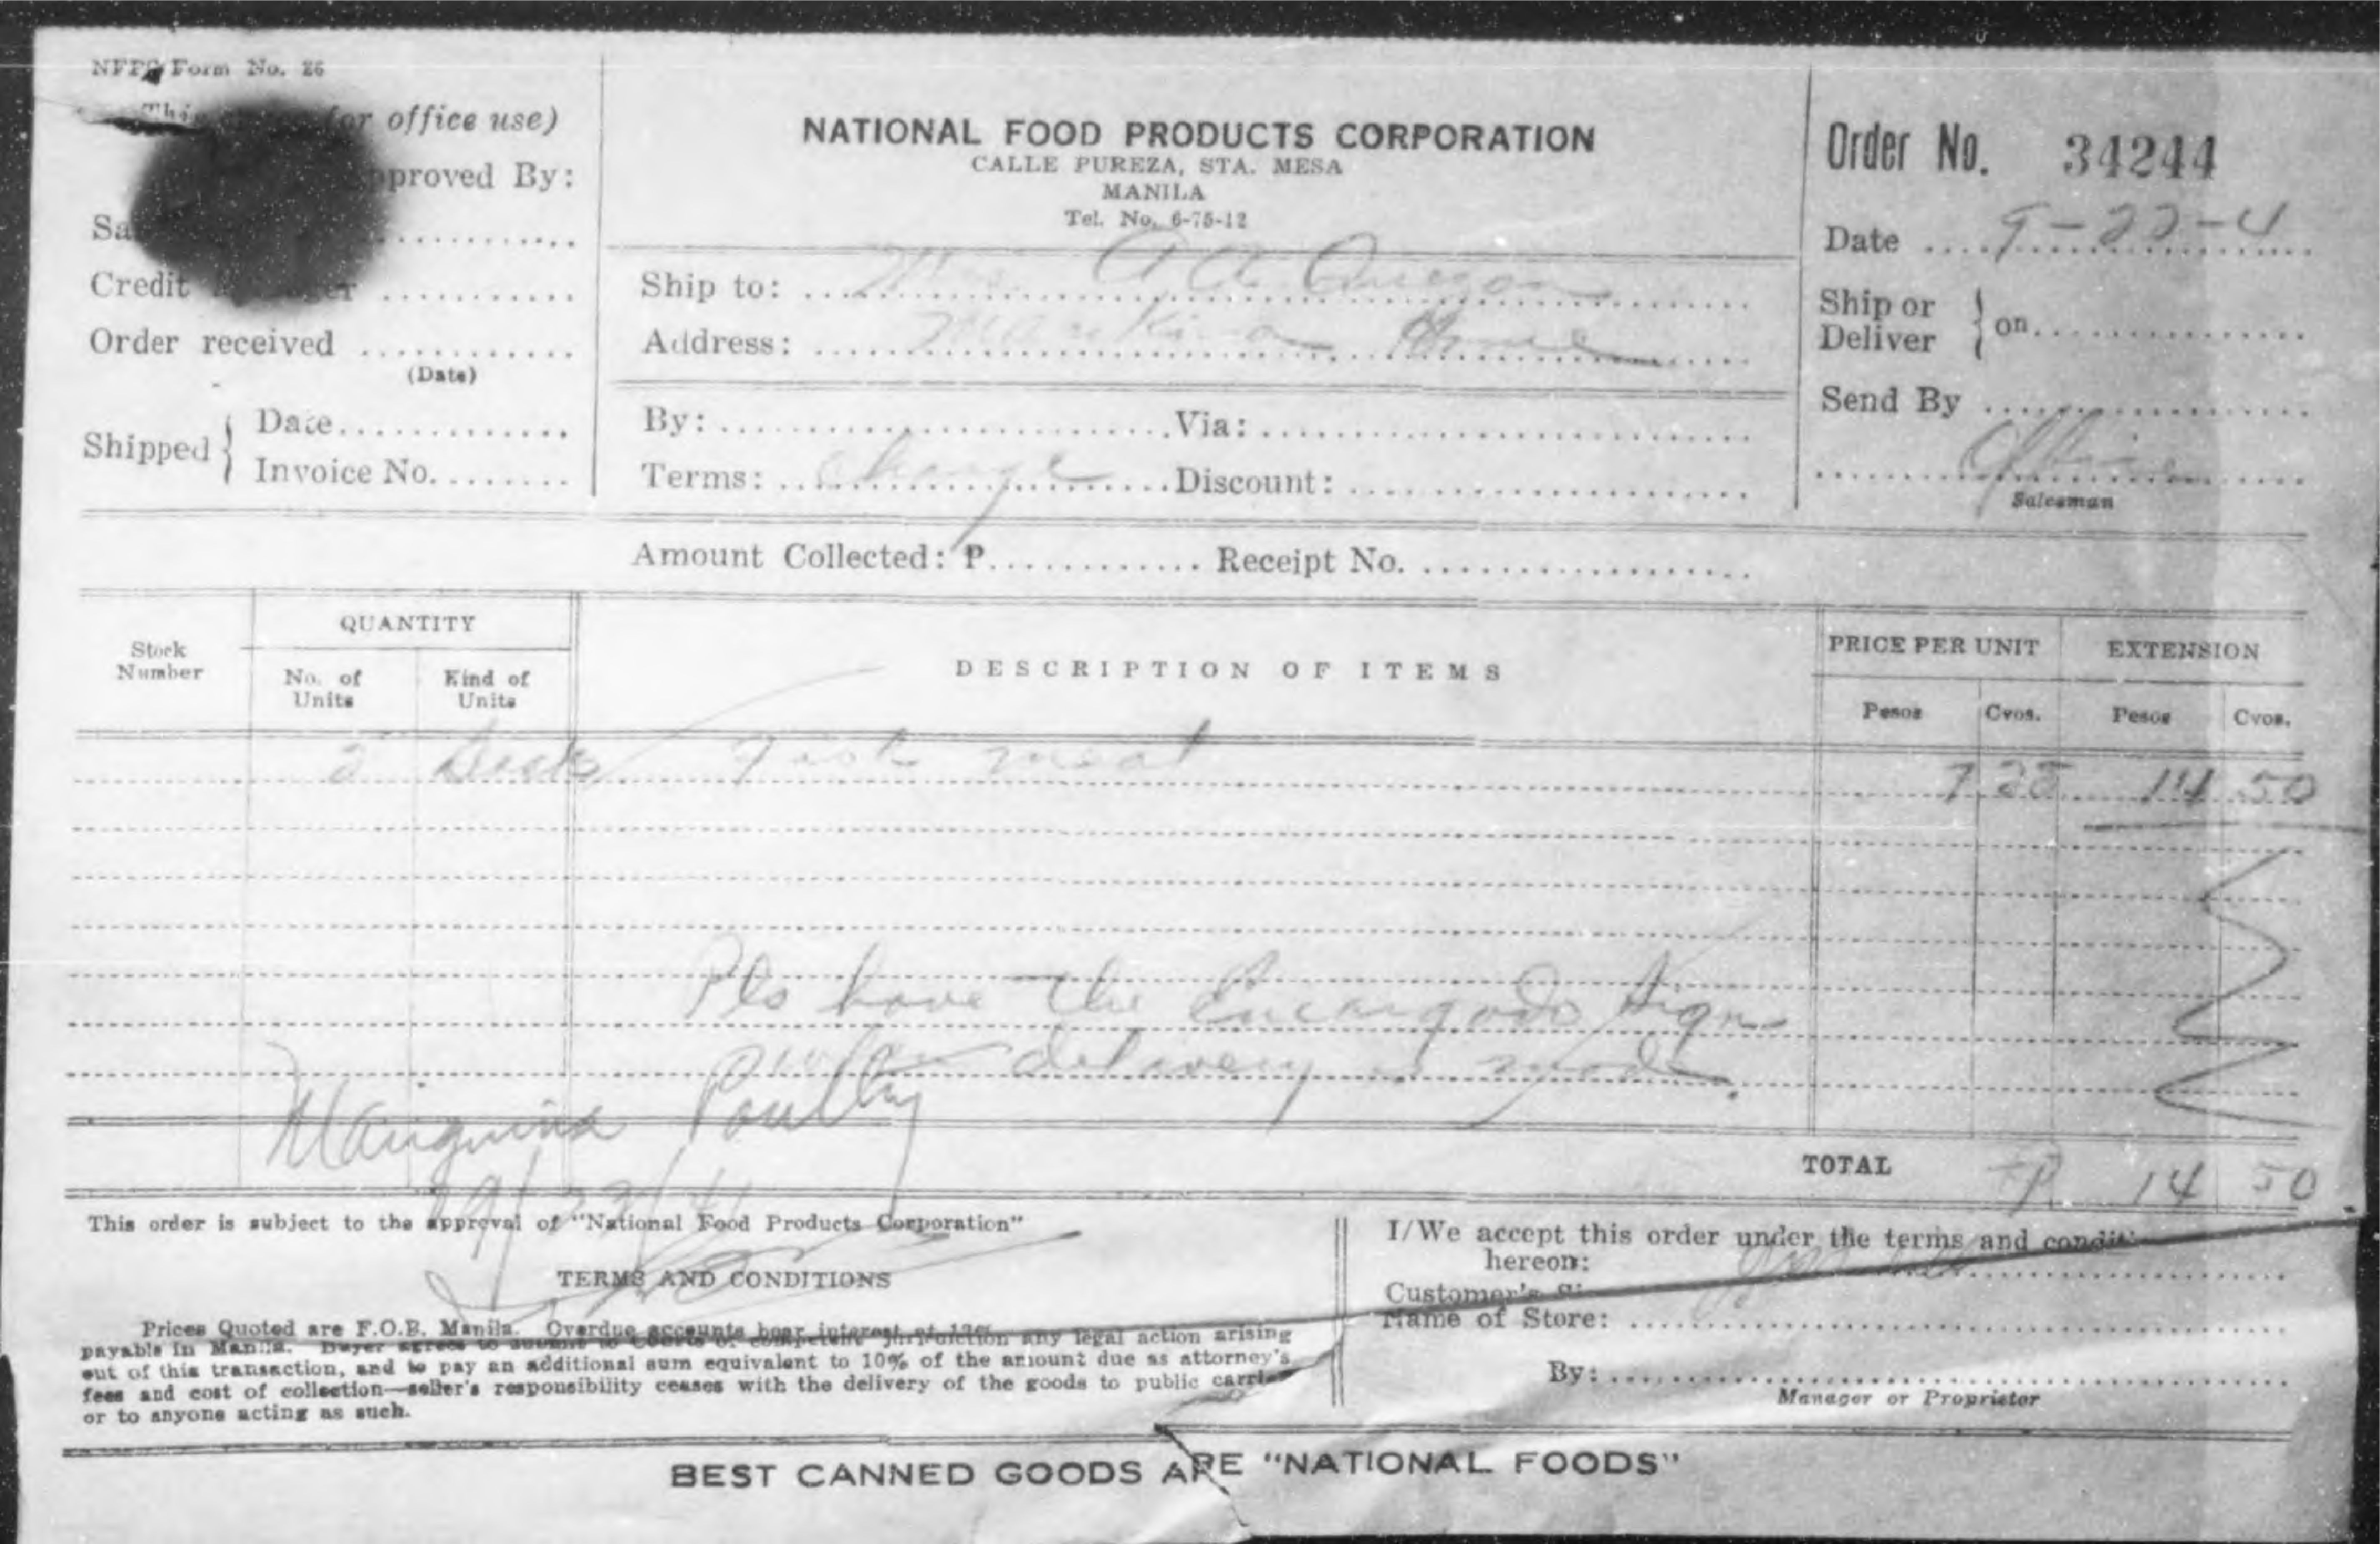 NFPC Form No. 26
office use)
Approved By:
Credit
Order received
(Date)
Shipped
Date
Invoice No.
NATIONAL FOOD PRODUCTS CORPORATION
CALLE PUREZA, STA. MESA
MANILA
Tel. No. 6-75-12
Ship to: A A Quezon
Address: Marikina Home
By: Via:
Terms: Charge Discount:
Order No. 34244
Date 9-22-4
Ship or Deliver on
Send By
Salesman
Amount Collected: P Receipt No.
Stock Number
QUANTITY
No. of Units
Kind of Units
DESCRIPTION OF ITEMS
PRICE PER UNIT
Pesos Cvos.
EXTENSION
Pesos Cvos.
2 Sacks Fish meal 7 25 14 50
Pls have the Encargado sign
when delivery is made.
Mariquina Poultry
9/23/41
TOTAL P 14 50
This order is subject to the approval of "National Food Products Corporation"
TERMS AND CONDITIONS
Prices Quoted are F.O.B. Manila. Overdue accounts bear interest at 12%
payable in Manila. any legal action arising
out of this transaction, and to pay an additional sum equivalent to 10% of the amount due as attorney's
fees and cost of collection—seller's responsibility ceases with the delivery of the goods to public carrier
or to anyone acting as such.
I/We accept this order under the terms and conditi
hereon:
Customer's
Name of Store:
By:
Manager or Proprietor
BEST CANNED GOODS ARE "NATIONAL FOODS"